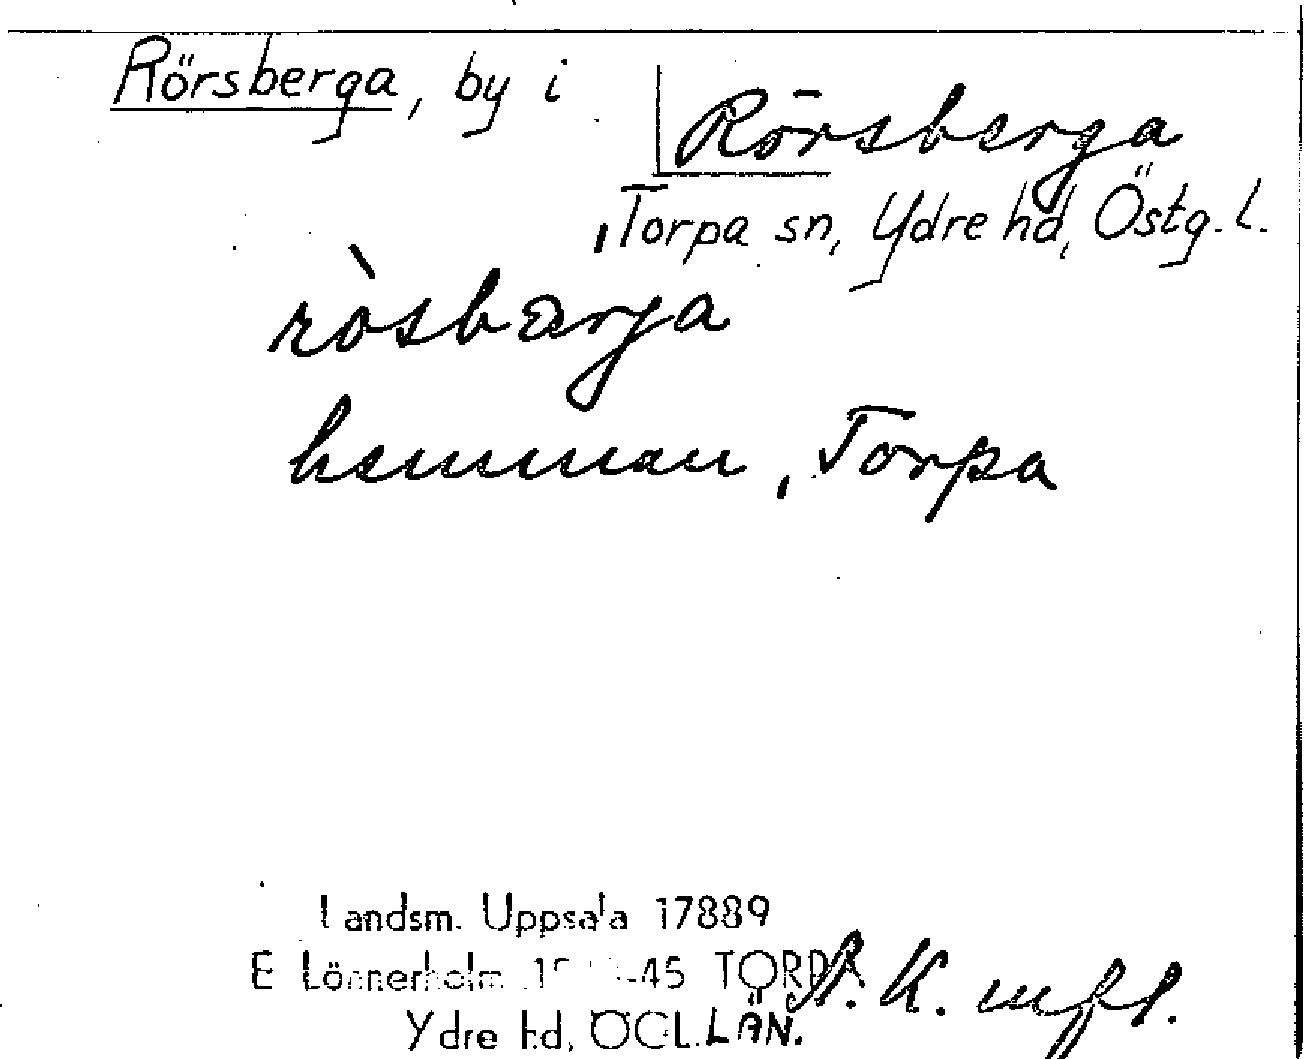 Rörsberga, by i
Rörsberga
Torpa sn, Ydre hd, Östg. l.
ròsbarja
hemman, Torpa
Landsm. Uppsala 17889
E Lönnerholm -45 TORPA
Ydre hd, ÖGL. LÄN.
K. mfl.